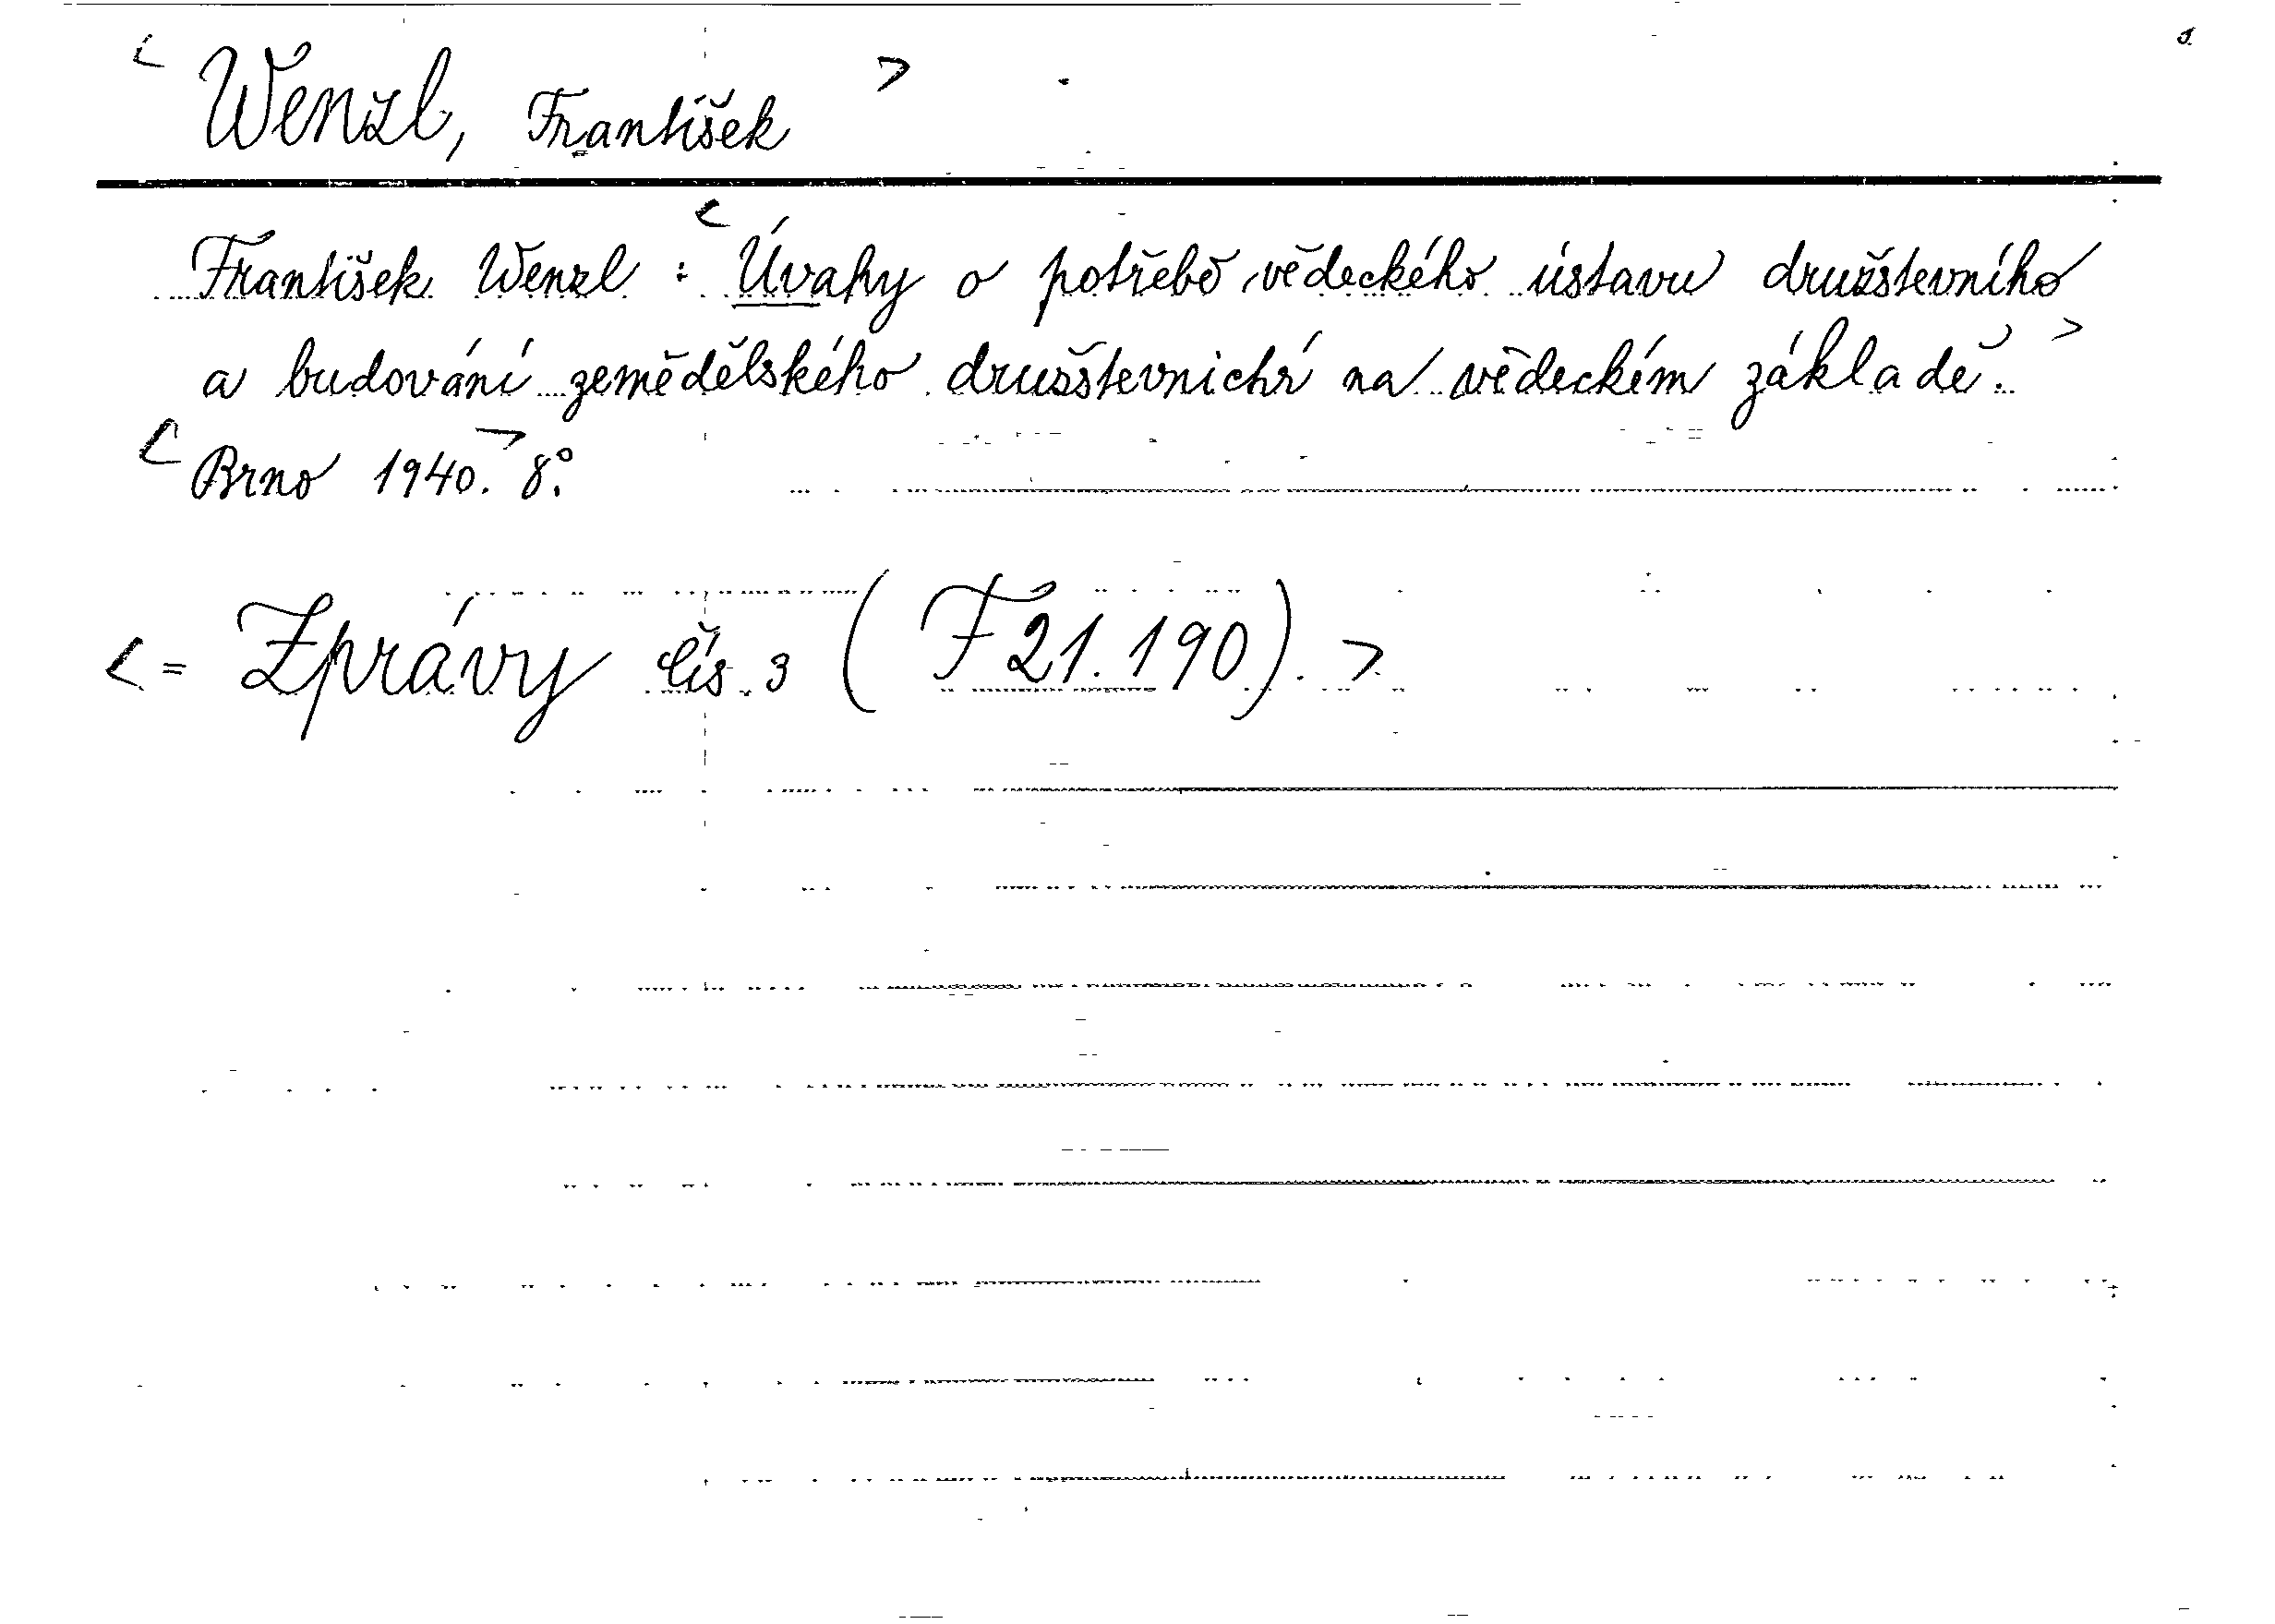 < Wenzl, František >
František Wenzl : < Úvahy o potřebě vědeckého ústavu družstevního
a budování zemědělského družstevnichtí na vědeckém základě. >
< Brno 1940. > 8°.
< = Zprávy čís. 3 (F 21.190). >